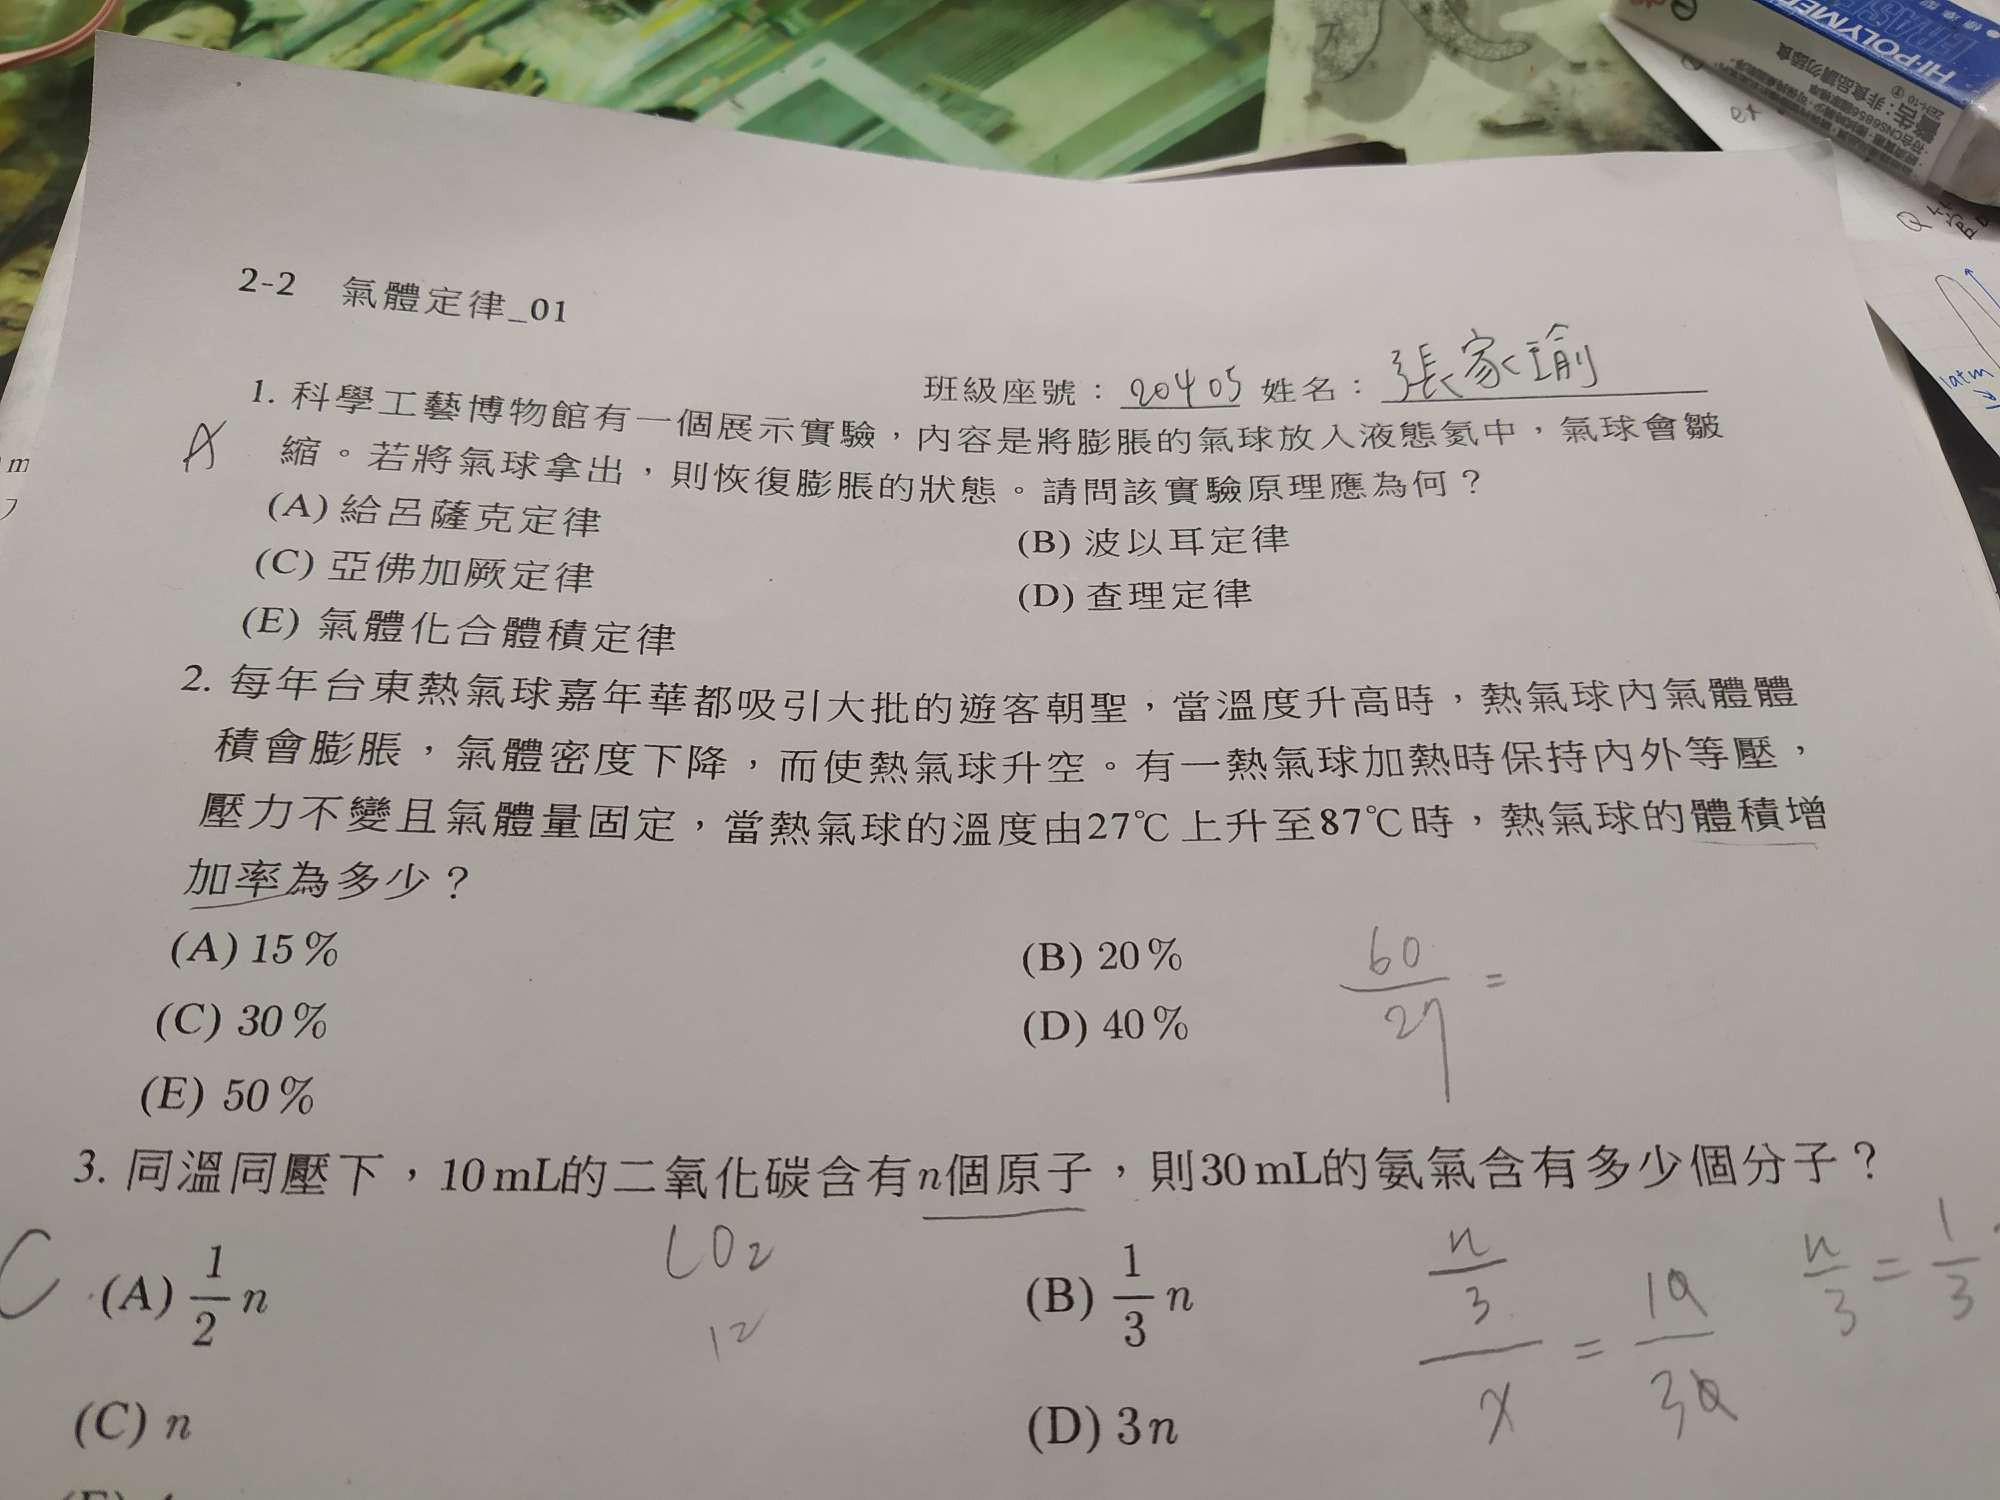 HI-POLYMER
警告：非食品請勿誤食
2-2 氣體定律_01
班級座號：20405 姓名：張家瑜
A
1. 科學工藝博物館有一個展示實驗，內容是將膨脹的氣球放入液態氮中，氣球會皺
縮。若將氣球拿出，則恢復膨脹的狀態。請問該實驗原理應為何？
(A) 給呂薩克定律
(B) 波以耳定律
(C) 亞佛加厥定律
(D) 查理定律
(E) 氣體化合體積定律
2. 每年台東熱氣球嘉年華都吸引大批的遊客朝聖，當溫度升高時，熱氣球內氣體體
積會膨脹，氣體密度下降，而使熱氣球升空。有一熱氣球加熱時保持內外等壓，
壓力不變且氣體量固定，當熱氣球的溫度由27℃上升至87℃時，熱氣球的體積增
加率為多少？
(A) 15%
(B) 20%
(C) 30%
(D) 40%
(E) 50%
60/27 =
3. 同溫同壓下，10 mL的二氧化碳含有n個原子，則30 mL的氨氣含有多少個分子？
C
(A) 1/2 n
(B) 1/3 n
(C) n
(D) 3n
CO2
12
n/3 / x = 10/30
n/3 = 1/3
1atm